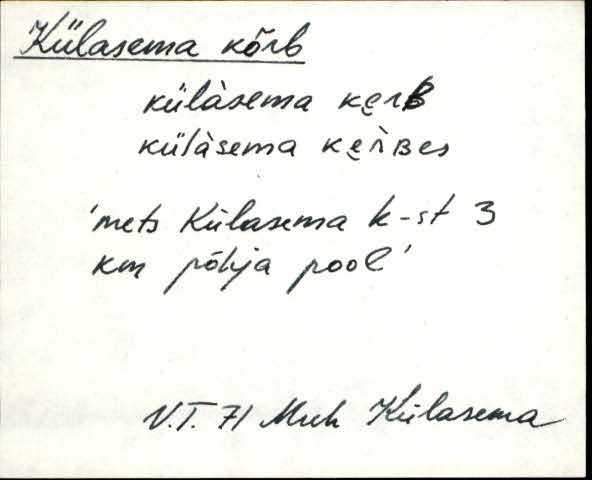 Külasema kõrb
külàsema kẹrB
külàsema kẹr̀Bes
'mets Külasema k-st 3
km põhja pool'
V.T. 71 Muh Külasema